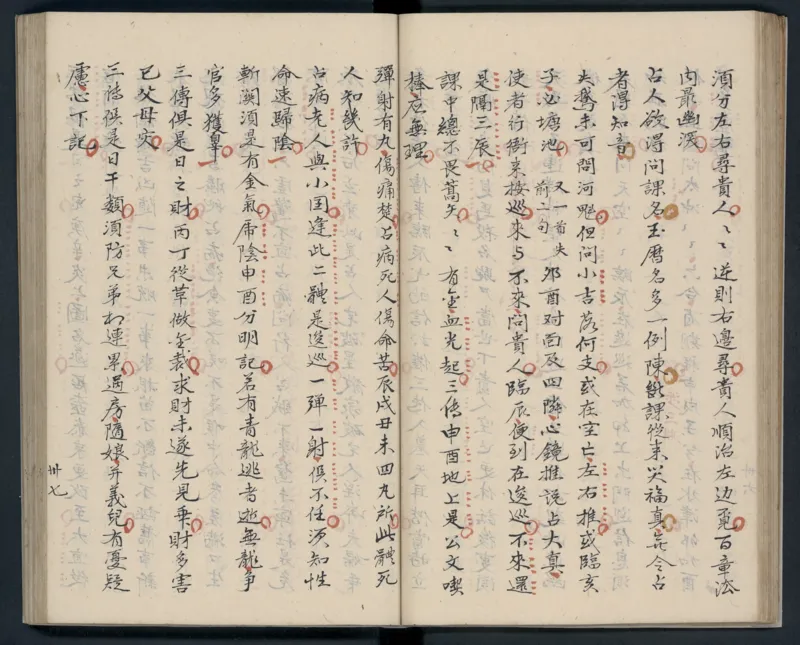 須分左右尋貴人〻〻逆則右邊尋貴人順治左边覓百章法
内最幽深
占人欲得問課名玉曆名多一例陳　課從来災福真　今占
者得知音
夫鸞未可問河魁但問小吉落何支或在空亡左右推或臨亥
子心塘池 又一首失前二句 外酉对酉及四隣心鏡推説占大真
使者行衙来按巡来与不来問貴人臨辰便到在逡巡不来還
是陽三辰
課中總不畏蒿矢〻〻有金血光起三傳申酉地上是公文喫
棒屈無理
彈射有九傷痛楚占病死人傷命苦辰戌丑未四九所此體死
人知幾許
占病老人與小国逢此二體是逡巡一彈一射俱不任須知性
命速歸陰
斬瀾須是有金氣帝陰申酉分明記若有青龍逃者逝無龍爭
官多獲辠
三傳俱是日之財丙丁從革做金裁求財未遂先見乗財多害
已父母灾
三傳俱是日干類須防兄弟相連累過房隨娘并義兒有憂疑
慮心下記
卅七